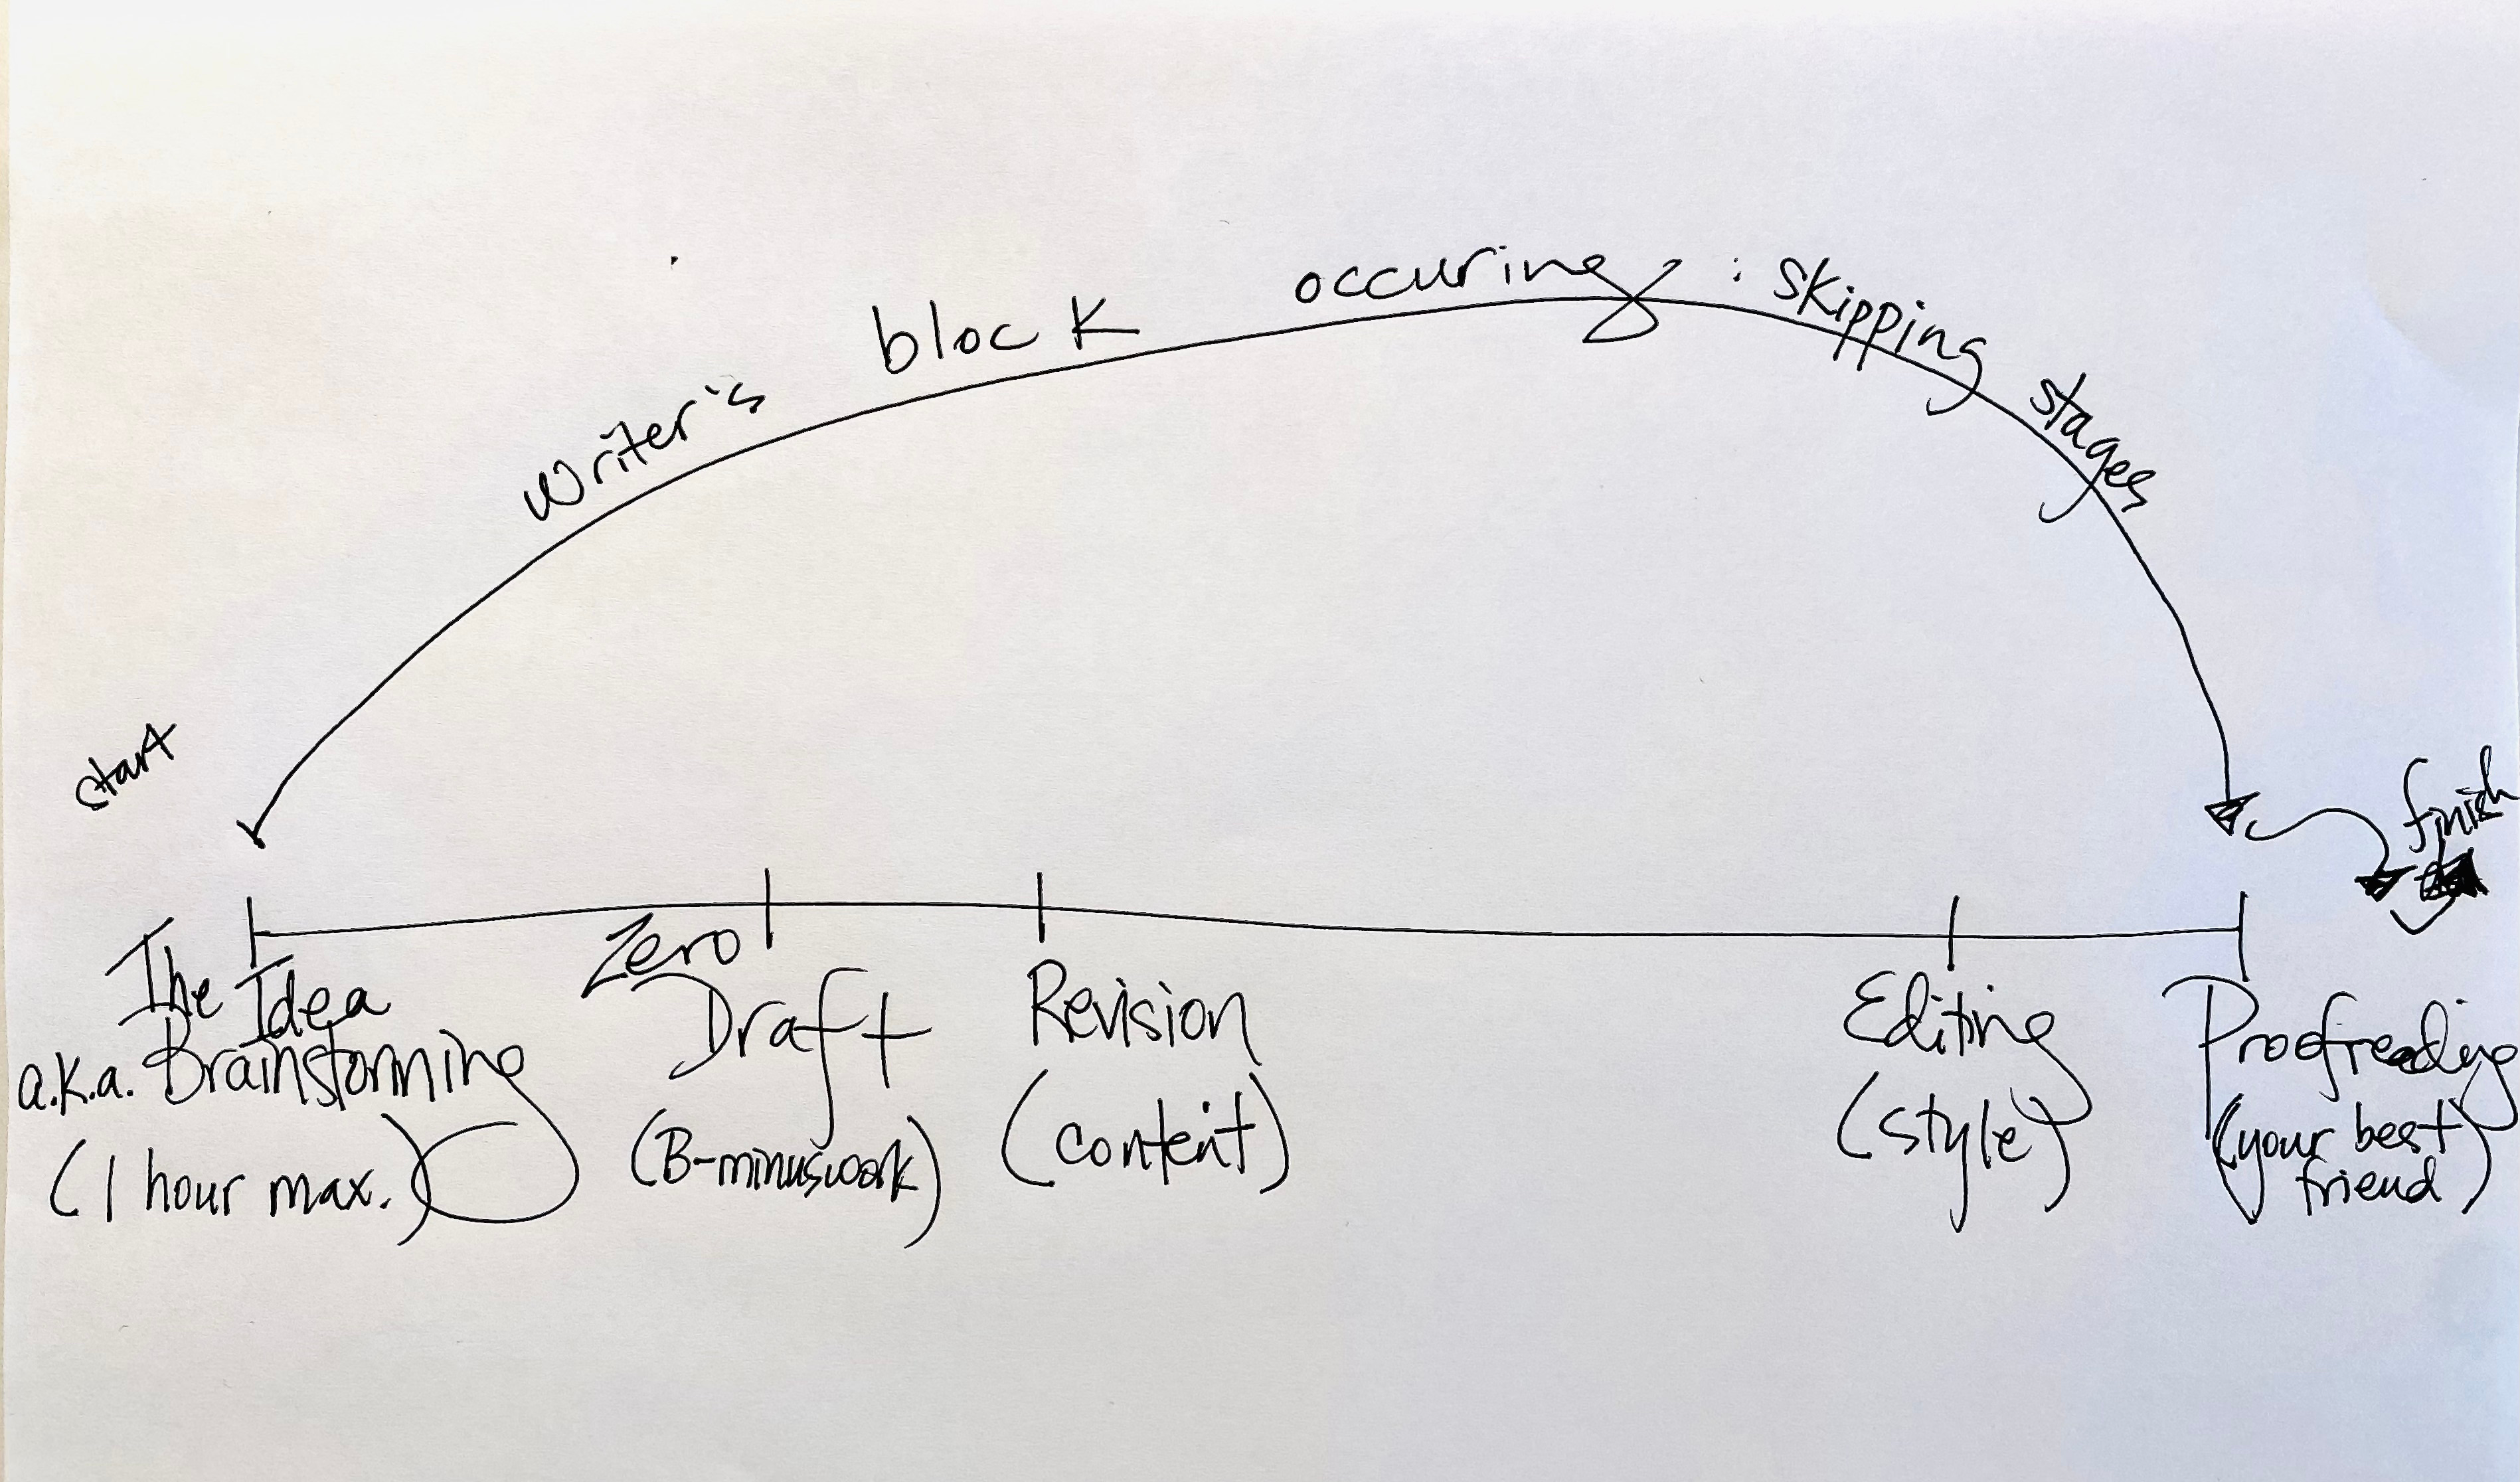 Writer's block occuring : skipping stages
start
finish
The Idea
a.k.a. Brainstorming
(1 hour max.)
Zero
Draft
(B-minus work)
Revision
(content)
Editing
(style)
Proofreading
(your best
friend)